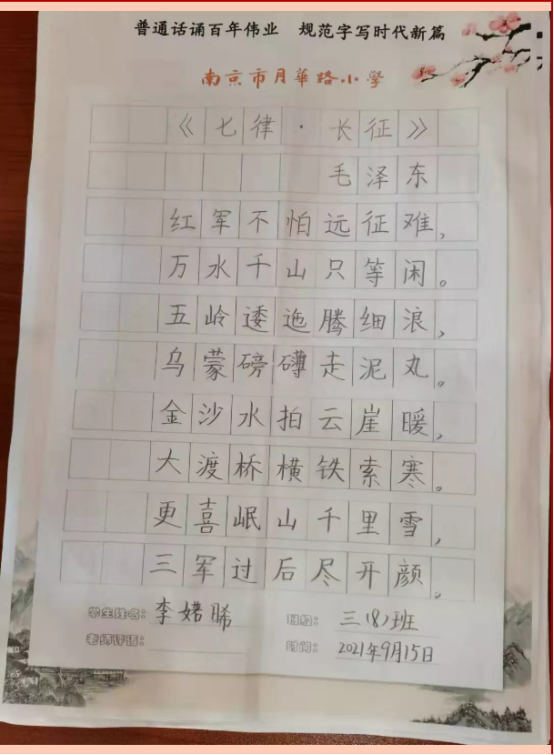 普通话诵百年伟业 规范字写时代新篇
南京市月華路小學
《七律·长征》
毛泽东
红军不怕远征难，
万水千山只等闲。
五岭逶迤腾细浪，
乌蒙磅礴走泥丸。
金沙水拍云崖暖，
大渡桥横铁索寒。
更喜岷山千里雪，
三军过后尽开颜。
学生姓名：李婼晞 班级：三(8)班
老师评语： 时间：2021年9月15日